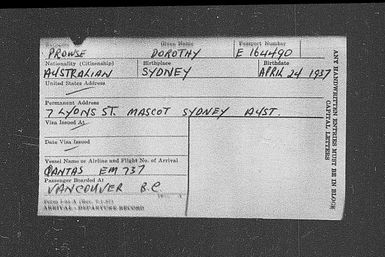 Given Name Passport Number
PROWSE DOROTHY E 164490
Nationality (Citizenship) Birthplace Birthdate
AUSTRALIAN SYDNEY APRIL 24 1937
United States Address
Permanent Address
7 LYONS ST. MASCOT SYDNEY AUST.
Visa Issued At
Date Visa Issued
Vessel Name or Airline and Flight No. of Arrival
QANTAS EM 737
Passenger Boarded At
VANCOUVER B.C.
ARRIVAL - DEPARTURE RECORD
ANY HANDWRITTEN ENTRIES MUST BE IN BLOCK
CAPITAL LETTERS